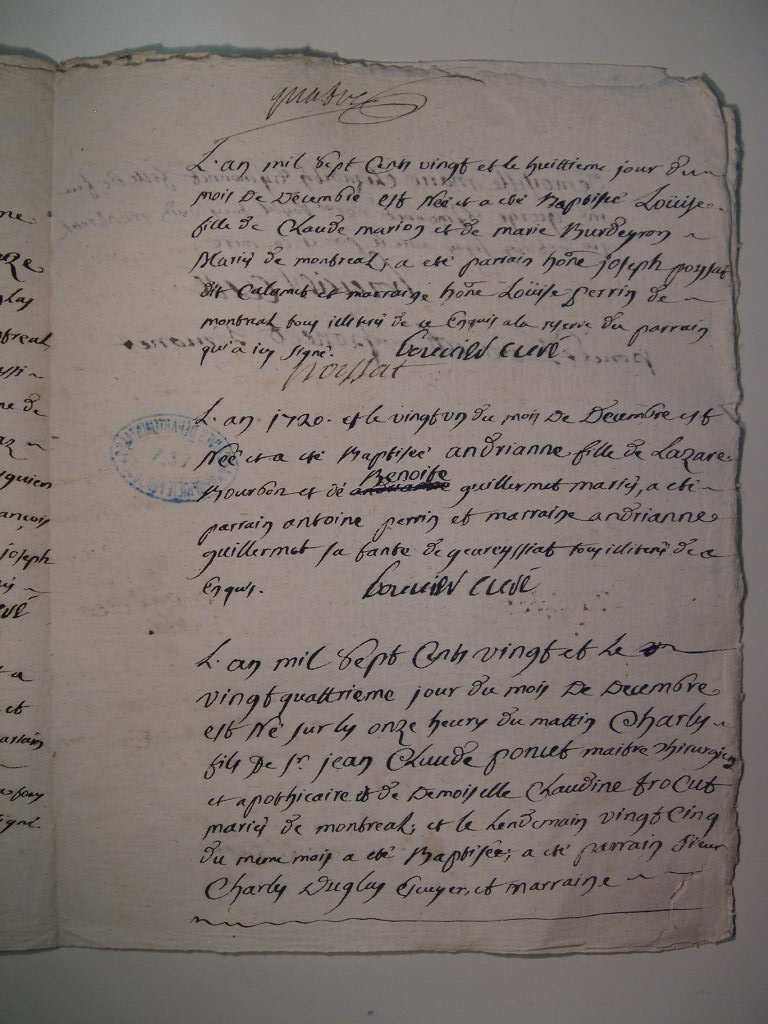 quatre
L'an mil sept Cents vingt et le huittieme jour du
mois De Decembre est Née et a eté Baptisée Loüise
fille de Claude marion et de marie Burdeyron
Mariés de montreal, a eté parrain hône joseph poyssat
dit Calamet et marraine hône Loüise perrin de
montreal tous illiterés de ce Enquis a la reserve du parrain
qui a icy signé. Bouvier curé
Poyssat
L'an 1720. et le vingt un du mois De Decembre est
Née et a eté Baptisée andrianne fille de Lazare
Benoite
Bourbon et de andrianne guillermet mariés, a eté
parrain antoine perrin et marraine andrianne
guillermet sa tante de geareyssiat tous illiterés de ce
Enquis. Bouvier curé
L'an mil sept Cents vingt et le
vingt quattrieme jour du mois De Decembre
est Né sur les onze heures du mattin Charles
fils De Sr. jean Claude poncet maitre chirurgien
et apothicaire et de Demoiselle Claudine trocut
mariés de montreal; et le lendemain vingt Cinq
du meme mois a eté Baptisée; a eté parrain Sieur
Charles Duglas Escuyer, et marraine